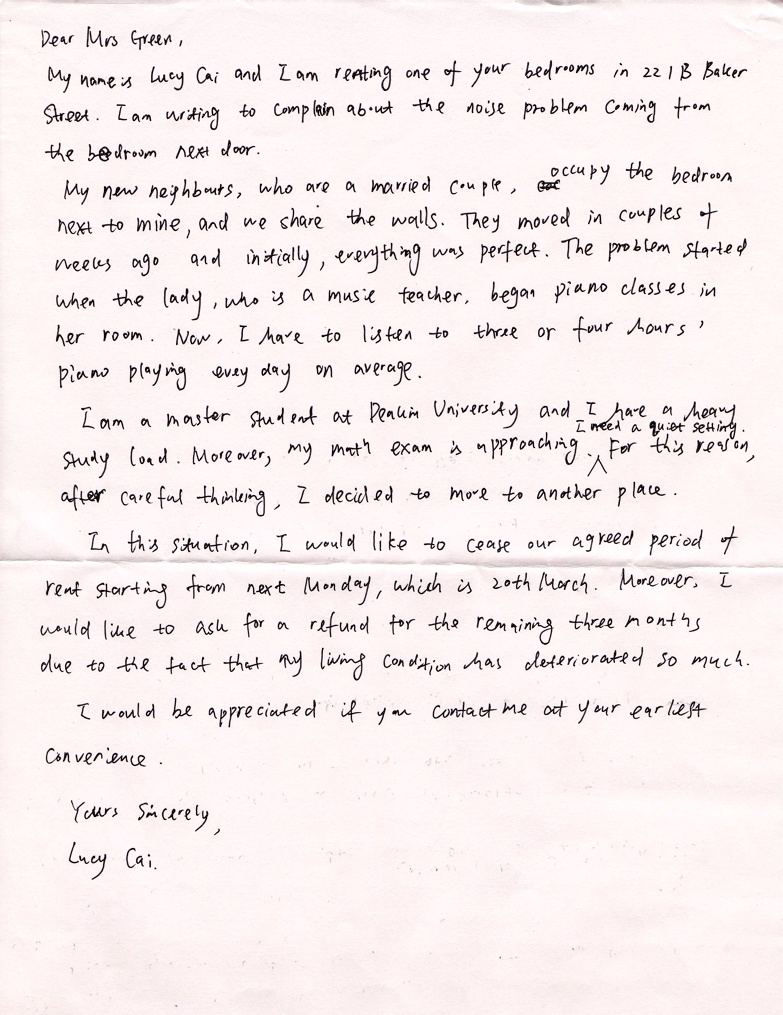 Dear Mrs Green,
My name is Lucy Cai and I am renting one of your bedrooms in 221B Baker
Street. I am writing to complain about the noise problem coming from
the bedroom next door.
My new neighbours, who are a married couple, occupy the bedroom
next to mine, and we share the walls. They moved in couples of
weeks ago and initially, everything was perfect. The problem started
when the lady, who is a music teacher, began piano classes in
her room. Now, I have to listen to three or four hours'
piano playing evey day on average.
I am a master student at Deakin University and I have a heavy
I need a quiet setting.
study load. Moreover, my math exam is approaching. For this reason,
after careful thinking, I decided to move to another place.
In this situation, I would like to cease our agreed period of
rent starting from next Monday, which is 20th March. Moreover, I
would like to ask for a refund for the remaining three months
due to the fact that my living condition has deteriorated so much.
I would be appreciated if you contact me at your earliest
convenience.
Yours Sincerely,
Lucy Cai.